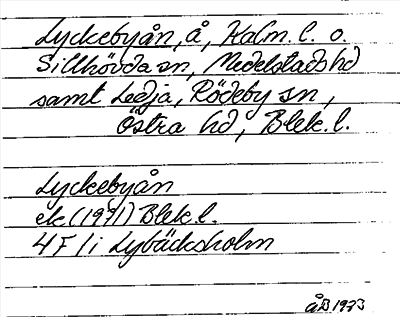 Lyckebyån, å, Kalm. l. o.
Sillhövda sn, Medelstads hd
samt Ledja, Rödeby sn,
Östra hd, Blek. l.
Lyckebyån
ek. (1971) Blek. l.
4 F 1 i Lybäcksholm
åB 1973